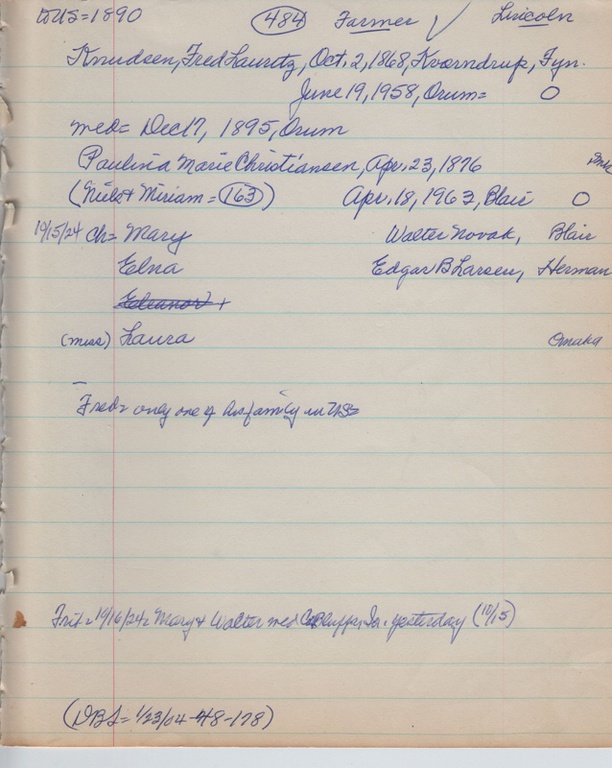 to US=1890 484 Farmer ✓ Lincoln
Knudsen, Fred Lauritz, Oct. 2, 1868, Kværndrup, Fyn.
June 19, 1958, Orum= O
med= Dec 17, 1895, Orum
Paulina Marie Christiansen, Apr. 23, 1876
(Niels + Miriam = 163) Apr. 18, 1963, Blair O
10/15/24 Ch= Mary Walter Novak, Blair
Elna Edgar B Larsen, Herman
Eleanor +
(miss) Laura Omaha
Fred= only one of his family in US=
10/16/24= Mary + Walter med Co Bluffs, Ia. yesterday (10/15)
(DBL= 1/23/04-48-178)